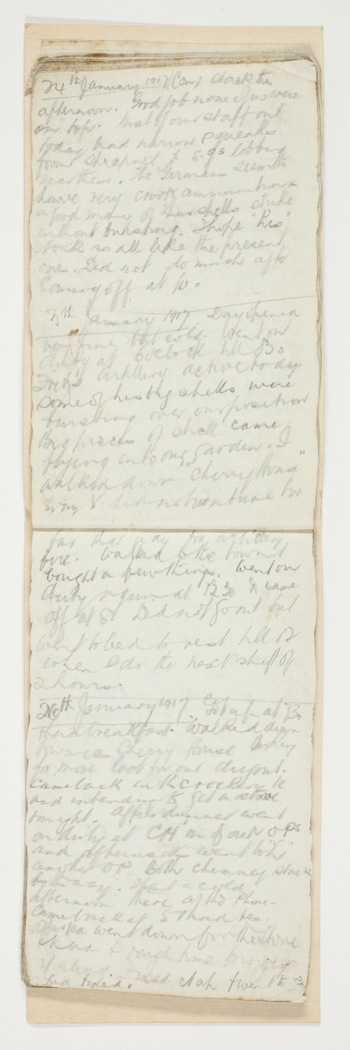 24th January 1917 (Cont) Stack this
afternoon. Good job none of us were
our tops. Most of our staff out
today had narrow squeaks
from shrapnel & 5.9s lobbing
near them. The Germans seem to
have very crook ammunition as
a good many of their shells strike
without bursting. I hope his
stock is all like the present
ones. Did not do much after
coming off at 10.
25th January 1917 Day opened
very fine but cold. Went on
duty at 6 o'clock till 8 30
Fritz's artillery active today
some of his big shells were
bursting over our position
Big pieces of shell came
flying into our garden. I
walked down "Cherry House"
way & did not venture too
far that way for artillery
fire. Walked to the town &
bought a few things. Went on
duty again at 12 30 & came
off at 5. Did not go out but
went to bed to rest till 12
when I do the next shift of
2 hours.
26th January 1917 Got up at 7 30
& had breakfast. Walked down
towards Cherry House
for more loot for our dugout.
Came back with crockery &c
and intending to get a stove
tonight. After dinner went
on duty at CH one of our O.P.s
and afterwards went to
another O.P. Both chimney stacks
by the way. Spent a cold
afternoon there at the phone.
Came back at 5 & had tea.
After tea went down for the stove
& had a rough time
bed tired.